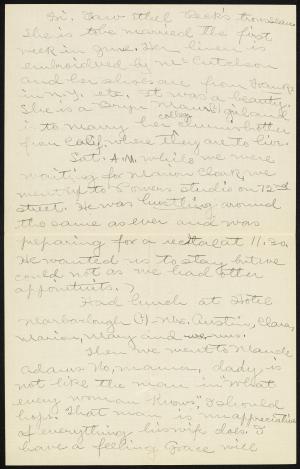 Fri. Saw Ethel Beek's trousseau
She is to be married the first
week in June. Her linen is
embroidered by Mc Cutcheon
and her shoes are from Franks
in N.Y. etc. It was a beauty.
She is a Bryn Mawr (?) girl and
is to marry her chum's brother
college
from Calif. where they are to live.
Sat. A.M. while we were
waiting for Marion Clark, we
went up to Bowers studio on 72nd
street. He was hustling around
the same as ever and was
preparing for a recital at 11.30.
He wanted us to stay but we
could not as we had other
appointments.
Had lunch at Hotel
Marbarlough (?) Mrs. Austin, Clara,
Marion, Mary and we ours.
Then we went to Maude
Adams. No, mama, dady is
not like the man in "What
every woman Knows," I should
hope. That man is unappreciative
of everything his wife does. I
have a feeling Grace will